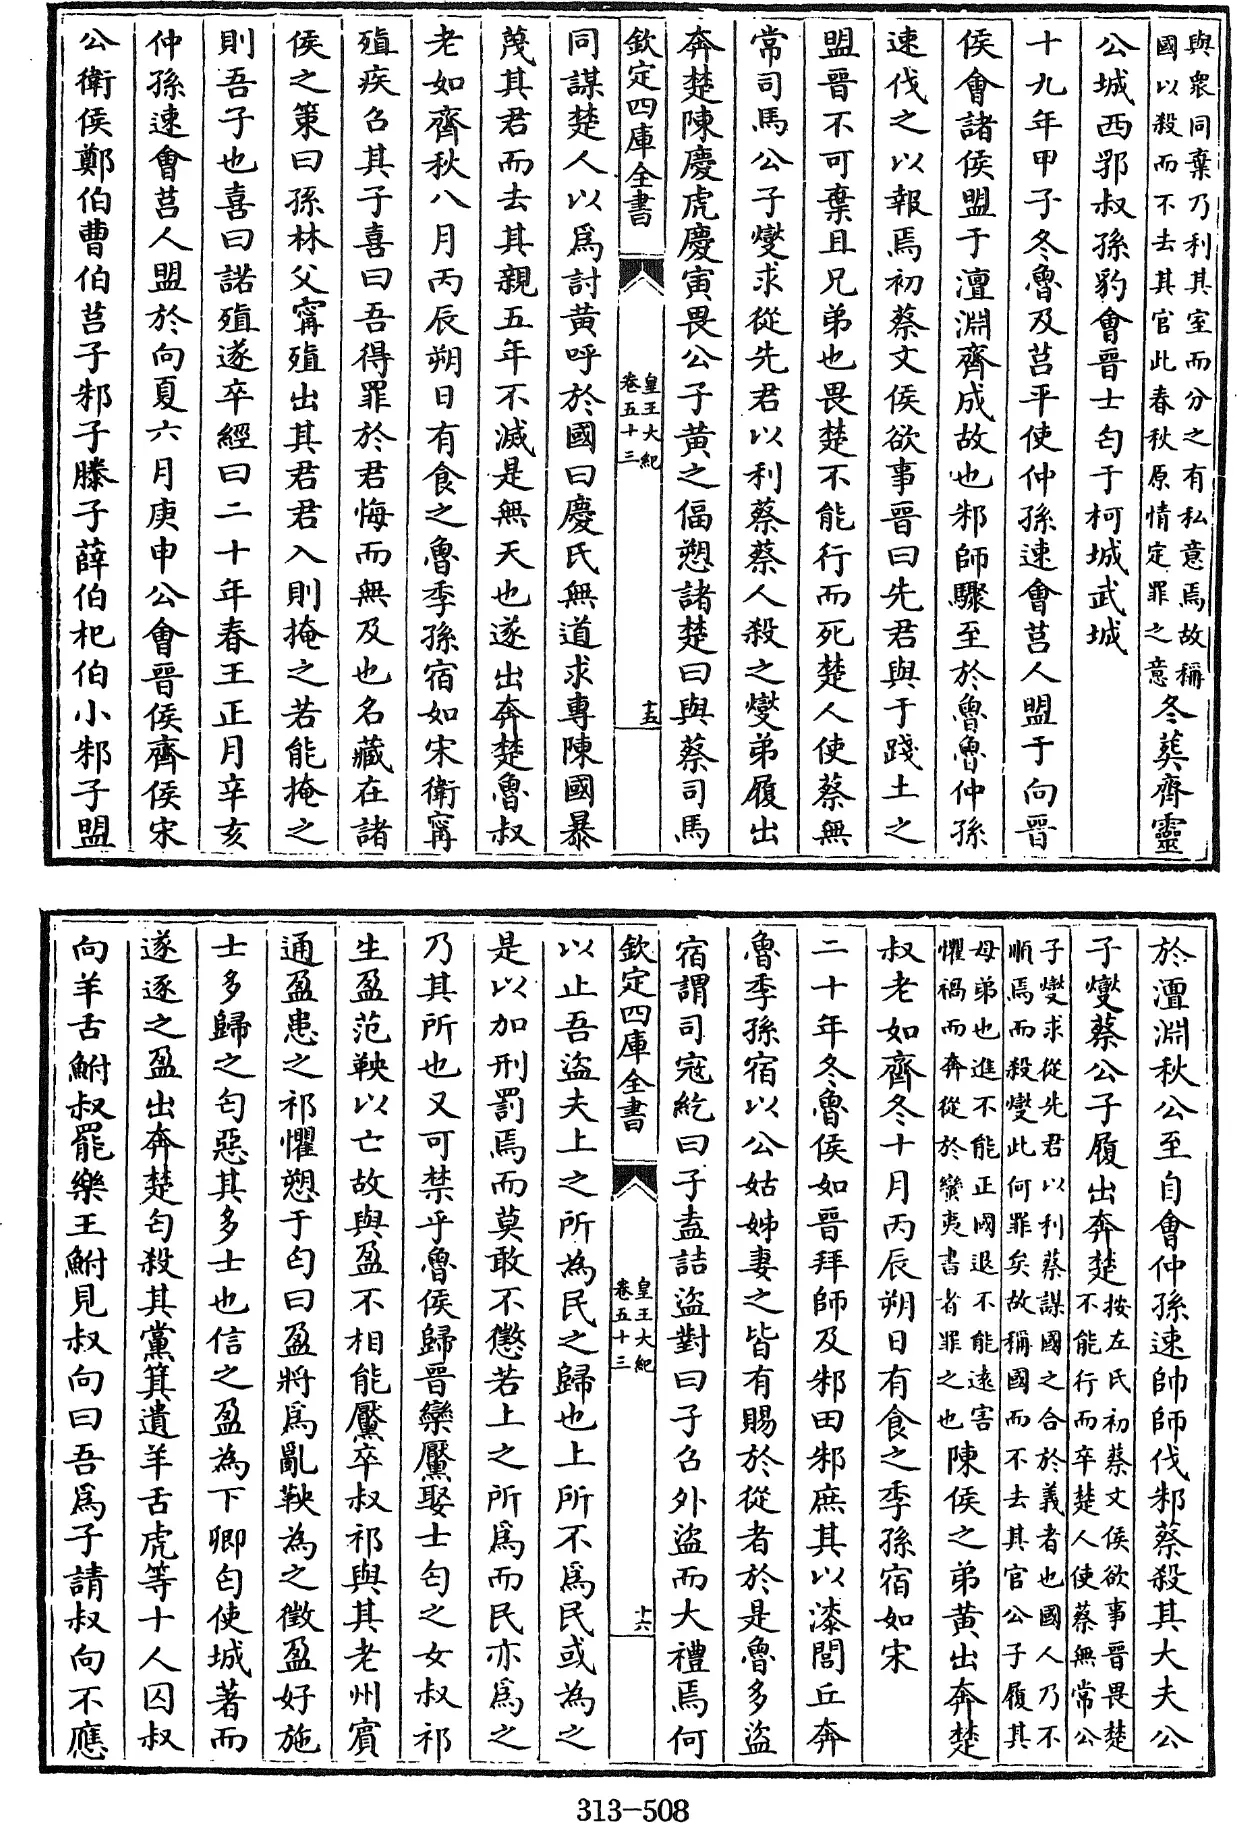 與衆同棄乃利其室而分之有私意焉故稱
國以殺而不去其官此春秋原情定罪之意
冬葬齊靈
公城西郛叔孫豹會晉士匄于柯城武城
十九年甲子冬魯及莒平使仲孫速會莒人盟于向晉
侯會諸侯盟于澶淵齊成故也邾師驟至於魯魯仲孫
速伐之以報焉初蔡文侯欲事晉曰先君與于踐土之
盟晉不可棄且兄弟也畏楚不能行而死楚人使蔡無
常司馬公子燮求從先君以利蔡蔡人殺之燮弟履出
奔楚陳慶虎慶寅畏公子黃之偪愬諸楚曰與蔡司馬
欽定四庫全書
皇王大紀
卷五十三
十五
同謀楚人以爲討黃呼於國曰慶氏無道求專陳國暴
蔑其君而去其親五年不滅是無天也遂出奔楚魯叔
老如齊秋八月丙辰朔日有食之魯季孫宿如宋衛甯
殖疾召其子喜曰吾得罪於君悔而無及也名藏在諸
侯之策曰孫林父甯殖出其君君入則掩之若能掩之
則吾子也喜曰諾殖遂卒經曰二十年春王正月辛亥
仲孫速會莒人盟於向夏六月庚申公會晉侯齊侯宋
公衛侯鄭伯曹伯莒子邾子滕子薛伯杞伯小邾子盟
於澶淵秋公至自會仲孫速帥師伐邾蔡殺其大夫公
子燮蔡公子履出奔楚
按左氏初蔡文侯欲事晉畏楚
不能行而卒楚人使蔡無常公
子燮求從先君以利蔡謀國之合於義者也國人乃不
順焉而殺燮此何罪矣故稱國而不去其官公子履其
母弟也進不能正國退不能遠害
懼禍而奔從於蠻夷書者罪之也
陳侯之弟黃出奔楚
叔老如齊冬十月丙辰朔日有食之季孫宿如宋
二十年冬魯侯如晉拜師及邾田邾庶其以漆閭丘奔
魯季孫宿以公姑姊妻之皆有賜於從者於是魯多盜
宿謂司寇紇曰子盍詰盜對曰子召外盜而大禮焉何
欽定四庫全書
皇王大紀
卷五十三
十六
以止吾盜夫上之所為民之歸也上所不爲民或為之
是以加刑罰焉而莫敢不懲若上之所爲而民亦爲之
乃其所也又可禁乎魯侯歸晉欒黶娶士匄之女叔祁
生盈范鞅以亡故與盈不相能黶卒叔祁與其老州賓
通盈患之祁懼愬于匄曰盈將爲亂鞅為之徵盈好施
士多歸之匄惡其多士也信之盈為下卿匄使城著而
遂逐之盈出奔楚匄殺其黨箕遺羊舌虎等十人囚叔
向羊舌鮒叔羆樂王鮒見叔向曰吾爲子請叔向不應
313-508